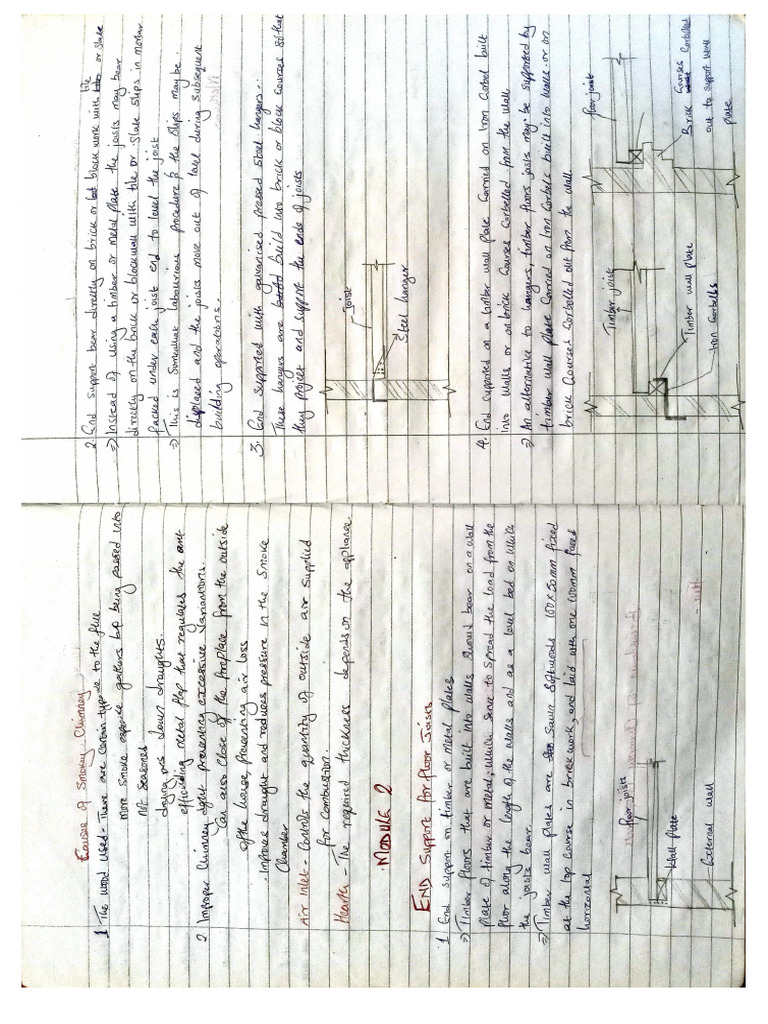 Causes of Smokey Chimney
1. The wood used - There are certain type to the flue
more smoke gathers being passed into
not seasoned
down draughts.
metal flap that regulates the
2. Improper Chimney preventing excessive variations.
Can also close of the fireplace from the outside
of the house, preventing air loss
Improves draught and reduces pressure in the smoke
Chamber
Air Inlet - Controls the quantity of outside air supplied
for combustion.
Hearth - The required thickness depends on the appliance
MODULE 2
END Support for floor Joists
1. End support on timber or metal plates
⇒ Timber floors that are built into walls should bear on a wall
plate of timber or metal, which serve to spread the load from the
floor along the length of the walls and as a level bed on which
the joists bear.
⇒ Timber wall plates are sawn softwoods 100 x 50mm fixed
at the top course in brick work, and laid with one 100mm faces
horizontal
floor joists
Wall plate
External wall
2. End support bear directly on brick or block work with tile or slate
⇒ Instead of using a timber or metal plate the joists may bear
directly on the brick or blockwall with tile or slate slips in mortar
packed under each joist end to level the joist
⇒ This is somewhat labourious procedure & the slips may be
displaced and the joists move out of level during subsequent
building operations.
3. End supported with galvanised pressed steel hangers.
These hangers are build into brick or block courses so that
they project and support the ends of joists
Joist
Steel hanger
4. End supported on a timber wall plate carried on Iron Corbel built
into walls or on brick courses corbelled from the wall
⇒ An alternative to hangers, timber floors joists may be supported by
timber wall plate carried on Iron Corbels built into walls or on
brick courses corbelled out from the wall.
Timber joist
Timber wall plate
Iron Corbells
floor joist
Brick Courses Corbelled
out to support wall
plate